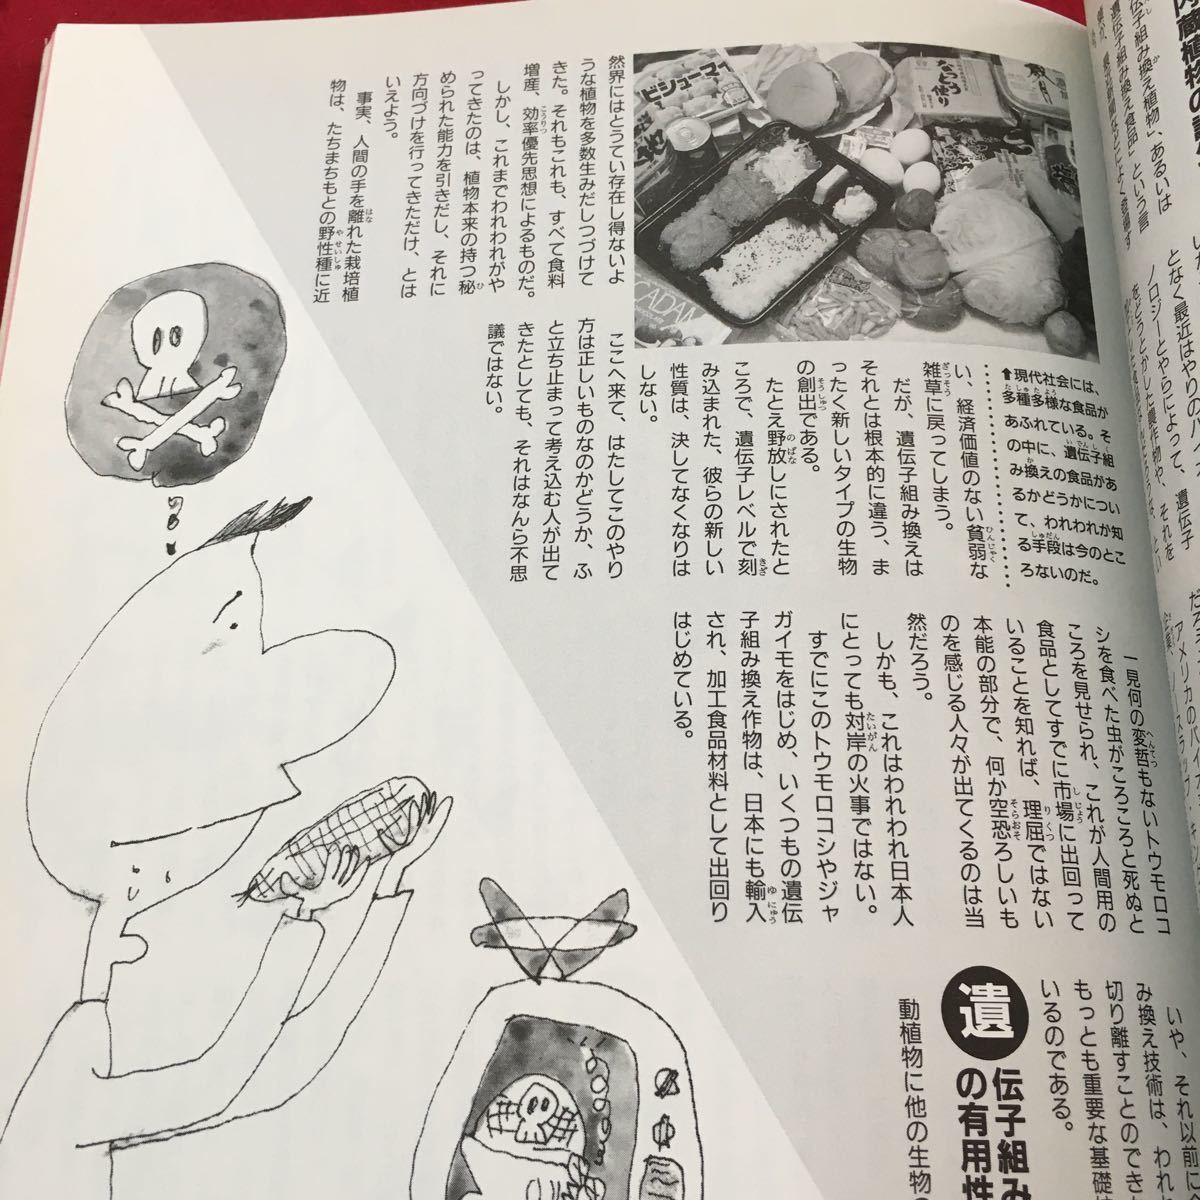 伝子組み換え植物」、あるいは
遺伝子組み換え食品」という言
然界にはとうてい存在し得ないよ
うな植物を多数生みだしつづけて
きた。それもこれも、すべて食料
増産、効率優先思想によるものだ。
しかし、これまでわれわれがや
ってきたのは、植物本来の持つ秘
められた能力を引きだし、それに
方向づけを行ってきただけ、とは
いえよう。
事実、人間の手を離れた栽培植
物は、たちまちもとの野性種に近
となく最近はやりのバイ
ノロジーとやらによって、遺伝子
をどうとかした農作物や、それを
⬆現代社会には、
多種多様な食品が
あふれている。そ
の中に、遺伝子組
み換えの食品があ
るかどうかについ
て、われわれが知
る手段は今のとこ
ろないのだ。
い、経済価値のない貧弱な
雑草に戻ってしまう。
だが、遺伝子組み換えは
それとは根本的に違う、ま
ったく新しいタイプの生物
の創出である。
たとえ野放しにされたと
ころで、遺伝子レベルで刻
み込まれた、彼らの新しい
性質は、決してなくなりは
しない。
ここへ来て、はたしてこのやり
方は正しいものなのかどうか、ふ
と立ち止まって考え込む人が出て
きたとしても、それはなんら不思
議ではない。
一見何の変哲もないトウモロコ
シを食べた虫がころころと死ぬと
ころを見せられ、これが人間用の
食品としてすでに市場に出回って
いることを知れば、理屈ではない
本能の部分で、何か空恐ろしいも
のを感じる人々が出てくるのは当
然だろう。
しかも、これはわれわれ日本人
にとっても対岸の火事ではない。
すでにこのトウモロコシやジャ
ガイモをはじめ、いくつもの遺伝
子組み換え作物は、日本にも輸入
され、加工食品材料として出回り
はじめている。
いや、それ以前に
み換え技術は、われわ
切り離すことのでき
もっとも重要な基礎
いるのである。
遺伝子組み
の有用性
動植物に他の生物